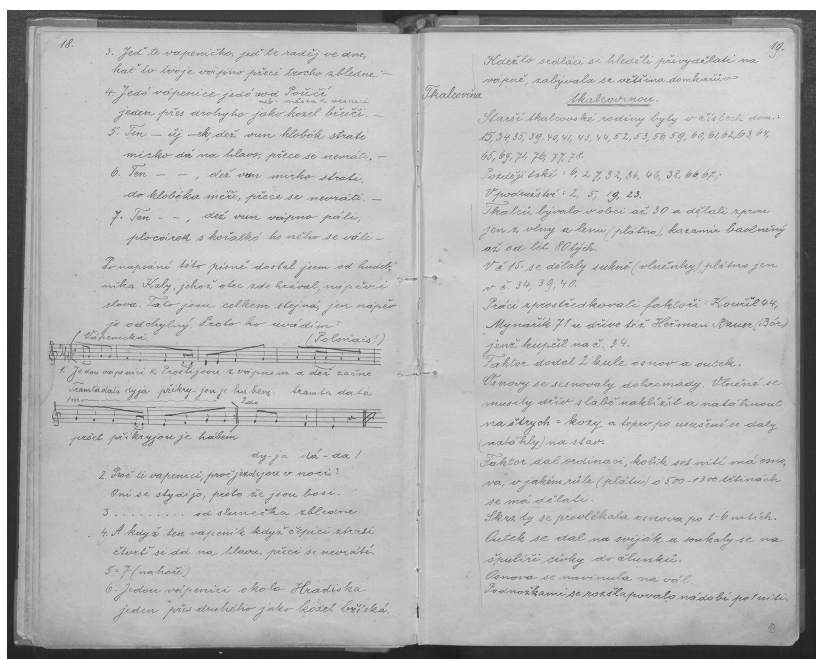 18.
3. Jeď te vápeničko, jeď te raděj ve dne,
hať to tvoje vápno přeci trocho zbledne –
4. Jedó vápenice jedó vod Poříčí
jeden přes drohyho jako kozel břeččí. –
5. Ten – új –ek, dež von klobók stratí
mirko dá na hlavo, přece se nevrátí. –
6. Ten – – , dež von mirko stratí,
do klobóka měří, přece se nevrátí –
7. Ten – – , dež von vápno pálí,
plocárek s kořalkó ho něho se válí –
Po napsání této písně dostal jsem od hudeb,
níka Kaly, jehož otec zde hrával, nápěv i
slova. Tato jsou celkem stejná, jen nápěv
je odchylný. Proto ho uvádím:
Vápenická (Polonais!)
1. Jedou vápeníci k Prostějovu z vápnem a dež začne
tramtadata dyja přikry jou je hábem. tramta data
1mo 2do
pršet přikryjou je hábem
dy-ja dá-da!
2. Proč ti vápeníci, proč jezdijou v noci?
Oni se stydijó, proto že jsou bosí.
3 . . . . . . . . od slunečka zbledne
4. A když ten vápeník když čepici ztratí
čtvrť si dá na hlavu, přeci se nevrátí.
5 = 7 (nahoře)
6. Jedou vápeníci okolo Hradiska
jeden přes druhého jako kozel břiská.
19.
Kdežto sedláci si hleděli přivydělati na
vápně, zabývala se většina domkařův
Tkalcovina
tkalcovinou.
Starší tkalcovské rodiny byly v číslech dom.:
15, 34, 35, 39, 40, 41, 43, 44, 52, 53, 56, 59, 60, 61, 62, 63, 64,
65, 69, 71, 76, 77, 78.
Později také: 6, 27, 32, 36, 46, 38, 66, 67;
V podružství: 2, 5, 19, 23.
Tkalců bývalo v obci až 30 a dělali zprvu
jen z vlny a lenu (plátno), kazamír bavlněný
až od let 80tých.
V č 15. se dělaly sukně (vlněnky), plátno jen
v č 34, 39, 40.
Práci zprostředkovali faktoři: Kouřil 44,
Mynařík 71 a dříve též Heřman Bauer, (Bór)
jenž kupčil na č. 34.
Faktor dodal 2 kule osnov a outek.
Osnovy se sesnovaly dohromady. Vlněné se
musily dřív slabě naklížit a natáhnout
na štrych = kozy a teprv po usušení se daly
(natáhly) na stav.
Faktor dal ordinaci, kolik set nití má osno,
va, v jakém růle (plátu) o 500–1300 třtinách
se má dělati.
Skrz ty se provlékala osnova po 1–6 nitích.
Outek se dal na sviják a soukaly se na
špulíři cívky do člunků.
Osnova se navinula na vál.
Podnožkami se rozšlapovalo nádobí po 1 niti